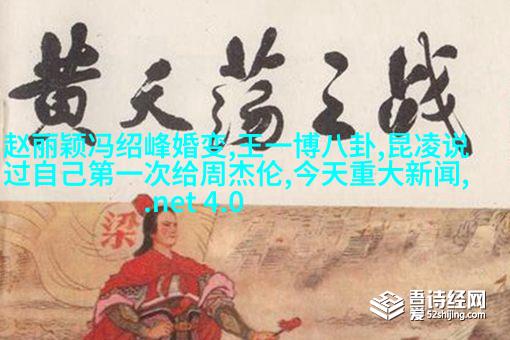 黄天荡之战
赵丽颖冯绍峰婚变,王一博八卦,昆凌说
过自己第一次给周杰伦,今天重大新闻,
.net 4.0
梁
吾爱诗经网
52shijing.com